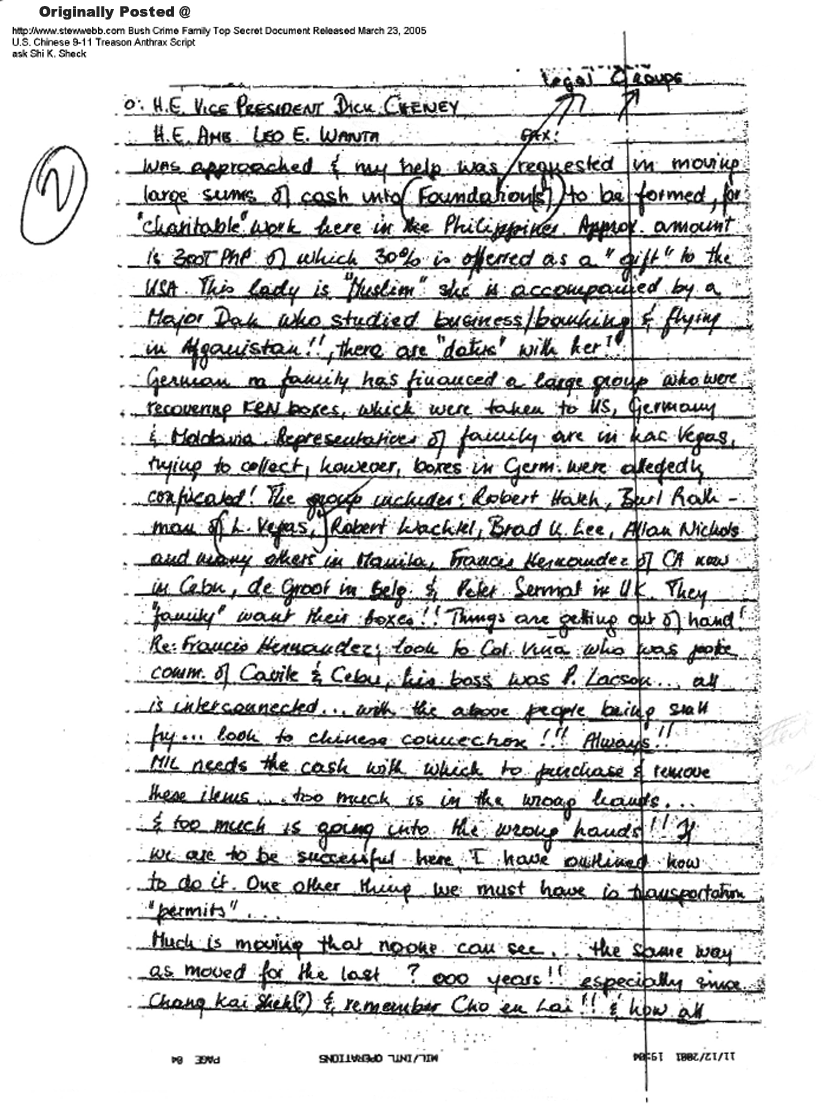 Originally Posted @
http://www.stewwebb.com Bush Crime Family Top Secret Document Released March 23, 2005
U.S. Chinese 9-11 Treason Anthrax Script
ask Shi K. Sheck
Legal Groups
o: H.E. VICE PRESIDENT DICK CHENEY
H.E. AMB. LEO E. WANTA FAX:
2
was approached & my help was requested in moving
large sums of cash into (Foundation(s)) to be formed, for
"charitable" work here in the Philippines. Approx. amount
is 300T PhP of which 30% is offerred as a "gift" to the
USA. This lady is "Muslim" she is accompanied by a
Major Dak who studied business/banking & flying
in Afganistan!!, there are "dates" with her!!
German family has financed a large group who were
recovering FRN boxes, which were taken to US, Germany
& Moldavia. Representatives of family are in Las Vegas,
trying to collect, however, boxes in Germ. were allegedly
conficated! The group includes: Robert Hatch, Burl Rath-
man of (L. Vegas,) Robert Wachtel, Brad K. Lee, Allan Nichols
and many others in Manila, Francis Hernandez of CA now
in Cebu, de Groot in Belg. & Peter Sermat in UK. They
"family" want their boxes!! Things are getting out of hand!
Re: Francis Hernandez; look to Col. Vina who was
comm. of Cavite & Cebu, his boss was P. Lacson... all
is interconnected... with the above people being small
fry... look to chinese connection!!! Always!!
MIL needs the cash with which to purchase & remove
these items... too much is in the wrong hands...
& too much is going into the wrong hands!! If
we are to be successful here, I have outlined how
to do it. One other thing we must have is transportation
"permits"...
Much is moving that noone can see... the same way
as moved for the last ? 000 years!! especially since
Chang Kai Shek(?) & remember Cho en Lai!! & how all
11/12/2001 19:04 MIL/INTL OPERATIONS PAGE 04